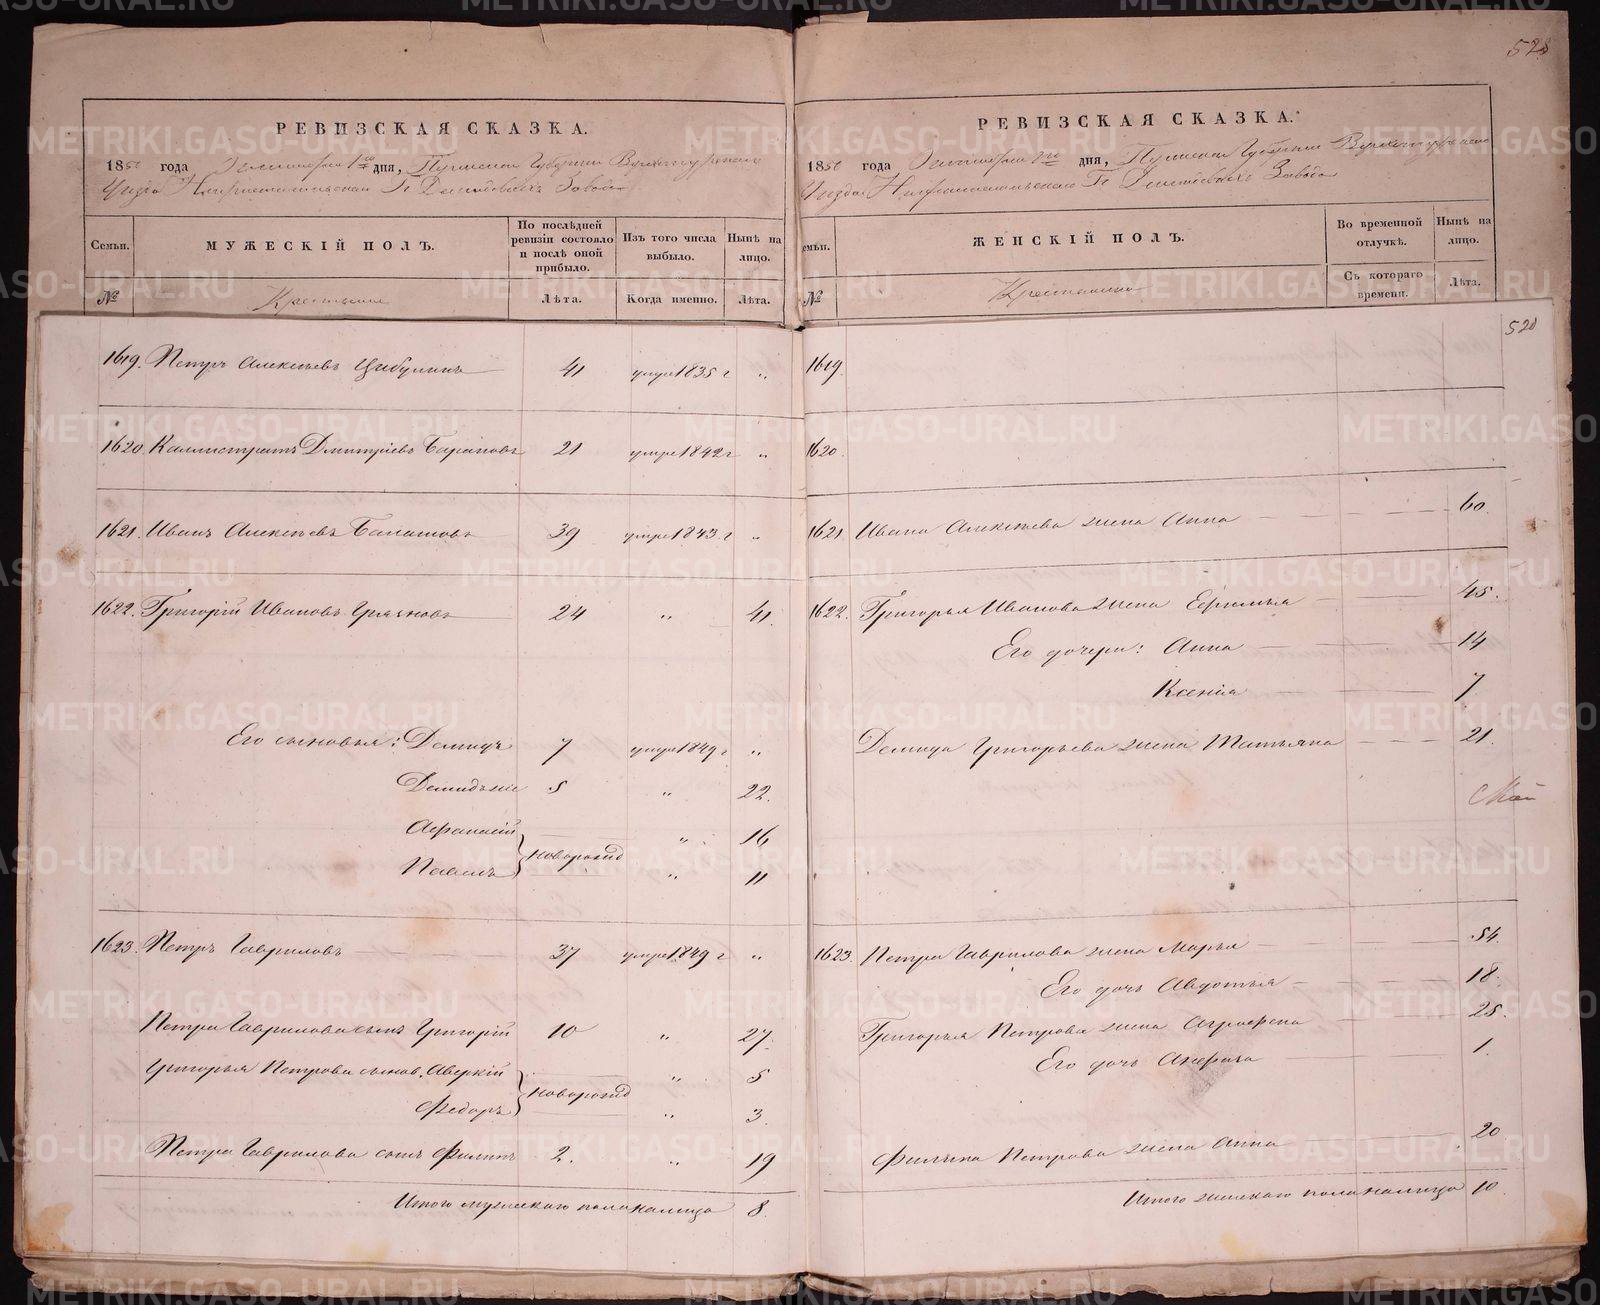 528
РЕВИЗСКАЯ СКАЗКА.
1850 года дня, Пермской Губернии Верхотурскаго
Уезда Заводов
Семьи.
МУЖЕСКІЙ ПОЛЪ.
По послѣдней ревизіи состояло и послѣ оной прибыло.
Изъ того числа выбыло.
Нынѣ на лицо.
№
Крестьяне
Лѣта.
Когда именно.
Лѣта.
1619. Петръ Алексѣевъ Цыбулинъ 41 умре 1835 г „
1620. Каллистратъ Дмитріевъ 21 умре 1842 г „
1621. Иванъ Алексѣевъ Балашовъ 39 умре 1843 г „
1622. Григорій Ивановъ 24 „ 41.
Его сыновья: Демидъ 7 умре 1849 г „
5 „ 22.
Афанасій „ 16
новорожд
Павелъ „ 11
1623. Петръ Гавриловъ 37 умре 1849 г „
Петра Гаврилова сынъ Григорій 10 „ 27.
Григорья Петрова сынов. Аверкій „ 5
новорожд
Федоръ „ 3.
Петра Гаврилова сынъ Филипъ 2. „ 19
Итого мужескаго пола налицо 8.
РЕВИЗСКАЯ СКАЗКА.
1850 года дня, Пермской Губернии Верхотурскаго
Уезда Заводов
емьи.
ЖЕНСКІЙ ПОЛЪ.
Во временной отлучкѣ.
Нынѣ на лицо.
№
Съ котораго времени.
Лѣта.
528
1619.
1620.
1621. Ивана Алексѣева жена Анна 60.
1622. Григорья Иванова жена Ефимья 45.
Его дочери: Анна 14
Ксенія 7
Демида Григорьева жена Татьяна 21.
1623. Петра Гаврилова жена Марья 54.
Его дочь Авдотья 18.
Григорья Петрова жена Аграфена 25.
Его дочь Анфиза 1.
Филипа Петрова жена Анна 20
Итого женскаго пола налицо 10.
METRIKI.GASO-URAL.RU